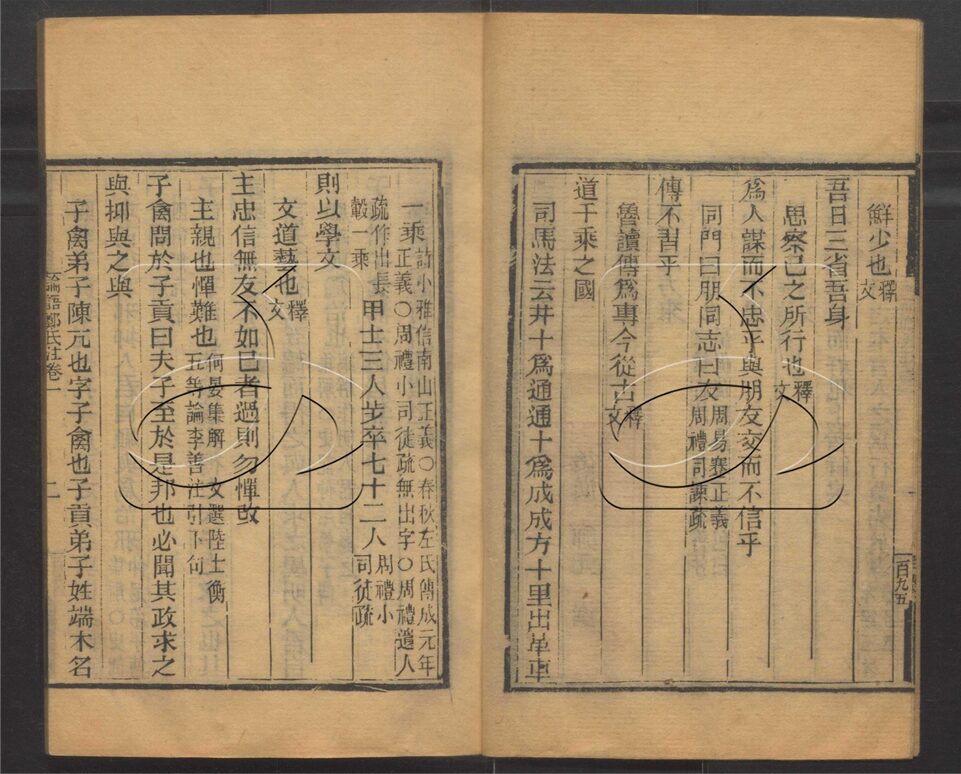 鮮少也釋文
吾日三省吾身
思察己之所行也釋文
爲人謀而不忠乎與朋友交而不信乎
同門曰朋同志曰友周易蹇正義
周禮司諫疏
傳不習乎
魯讀傳爲專今從古釋文
道千乘之國
司馬法云井十爲通通十爲成成方十里出革車
百九五
一乘詩小雅信南山正義〇春秋左氏傳成元年
正義〇周禮小司徒疏無出字〇周禮遣人
疏作出長
轂一乘
甲士三人步卒七十二人周禮小
司徒疏
則以學文
文道藝也釋文
主忠信無友不如己者過則勿憚改
主親也憚難也何晏集解文選陸士衡
五等論李善注引下句
子禽問於子貢曰夫子至於是邦也必聞其政求之
與抑與之與
子禽弟子陳亢也字子禽也子貢弟子姓端木名
論語鄭氏注卷一
二